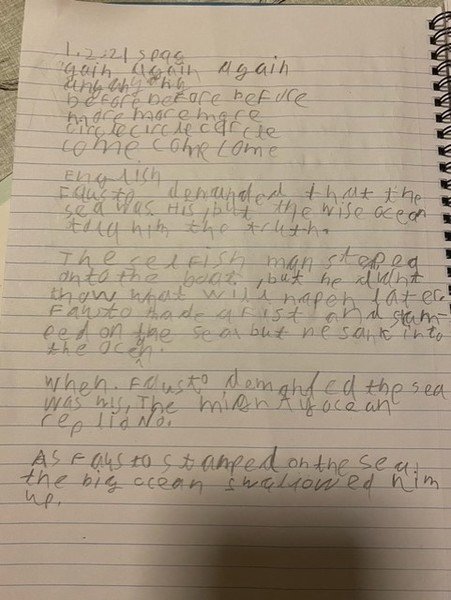 1.2.21 spag
gain again again
any any any
before before before
more more more
circle circle circle
come come come
English
Fausto demanded that the
sea was His, but the wise ocean
told him the truth.
The selfish man steped
onto the boat, but he didnt
know what will hapen later.
Fausto made a fist and stam-
ped on the sea but he sank into
the ocen.
When. Fausto demanded the sea
was his, The mighty ocean
replid No.
As Fausto stamped on the sea,
the big ocean swallowed him
up.